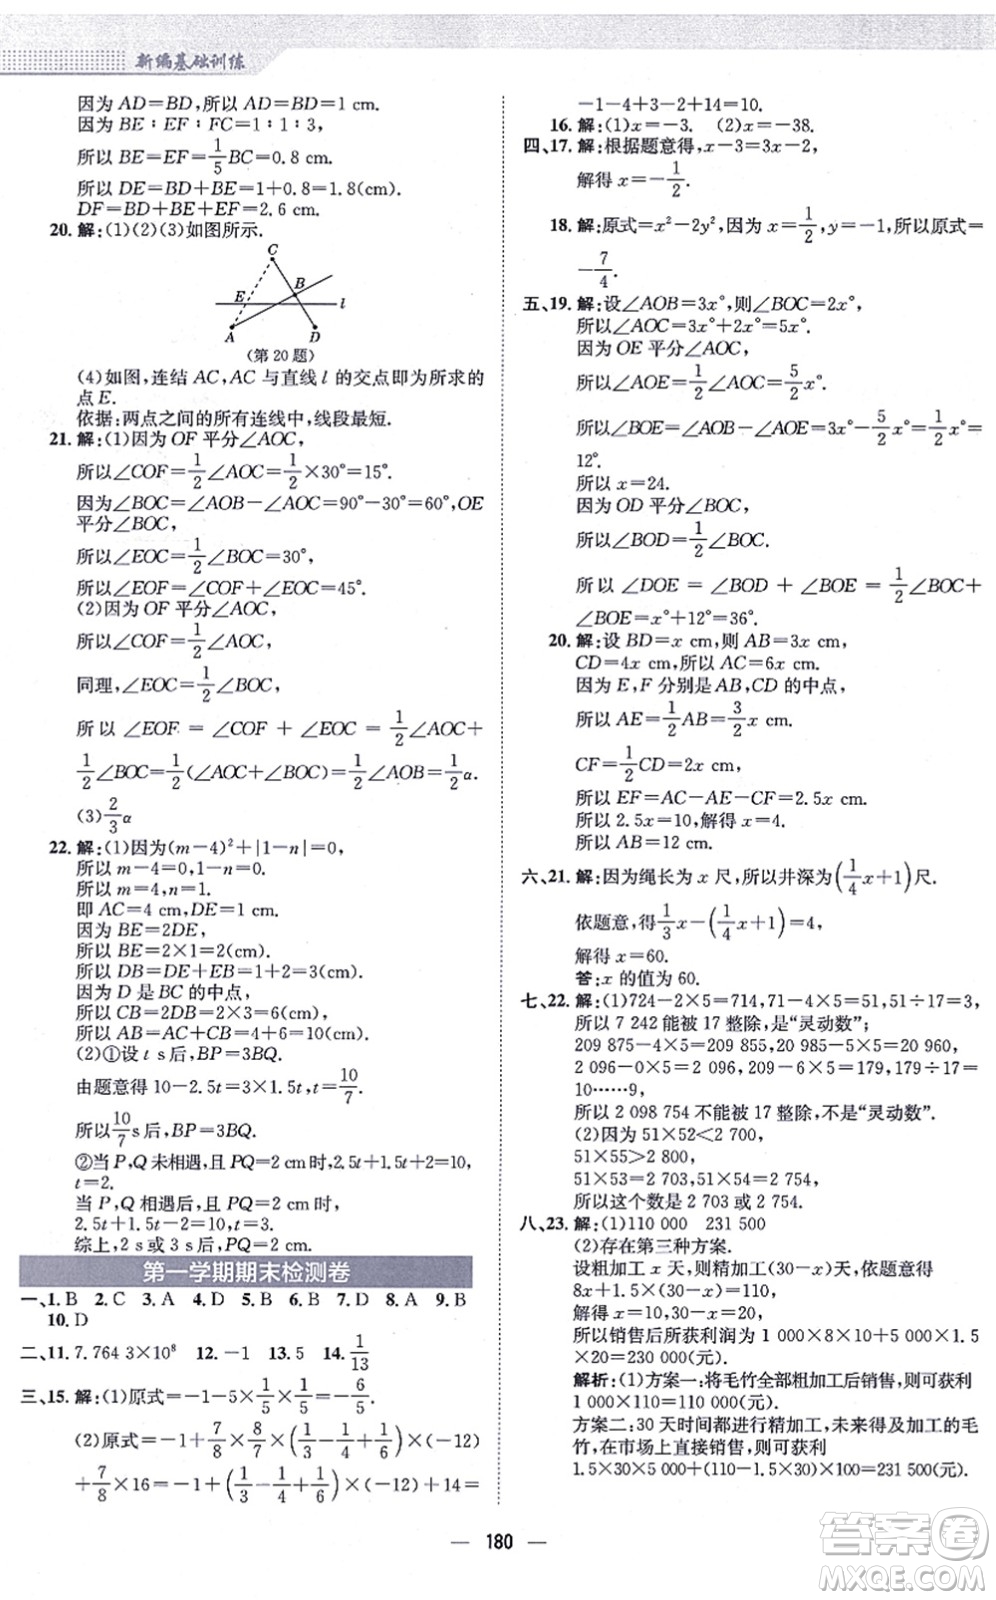 新编基础训练
因为 AD=BD,所以 AD=BD=1 cm.
因为 BE∶EF∶FC=1∶1∶3,
所以 BE=EF=1/5BC=0.8 cm.
所以 DE=BD+BE=1+0.8=1.8(cm).
DF=BD+BE+EF=2.6 cm.
20. 解:(1)(2)(3)如图所示.
C
E B l
A D
(第 20 题)
(4)如图,连结 AC,AC 与直线 l 的交点即为所求的
点 E.
依据:两点之间的所有连线中,线段最短.
21. 解:(1)因为 OF 平分∠AOC,
所以∠COF=1/2∠AOC=1/2×30°=15°.
因为∠BOC=∠AOB-∠AOC=90°-30°=60°,OE
平分∠BOC,
所以∠EOC=1/2∠BOC=30°,
所以∠EOF=∠COF+∠EOC=45°.
(2)因为 OF 平分∠AOC,
所以∠COF=1/2∠AOC,
同理,∠EOC=1/2∠BOC,
所以 ∠EOF = ∠COF + ∠EOC = 1/2∠AOC+
1/2∠BOC=1/2(∠AOC+∠BOC)=1/2∠AOB=1/2α.
(3)2/3α
22. 解:(1)因为(m-4)²+|1-n|=0,
所以 m-4=0,1-n=0,
所以 m=4,n=1.
即 AC=4 cm,DE=1 cm.
因为 BE=2DE,
所以 BE=2×1=2(cm).
所以 DB=DE+EB=1+2=3(cm).
因为 D 是 BC 的中点,
所以 CB=2DB=2×3=6(cm).
所以 AB=AC+CB=4+6=10(cm).
(2)①设 t s后,BP=3BQ.
由题意得 10-2.5t=3×1.5t,t=10/7.
所以10/7s后,BP=3BQ.
②当 P,Q 未相遇,且PQ=2 cm时,2.5t+1.5t+2=10,
t=2.
当 P,Q 相遇后,且 PQ=2 cm时,
2.5t+1.5t-2=10,t=3.
综上,2 s或 3 s后,PQ=2 cm.
第一学期期末检测卷
一、1. B 2. C 3. A 4. D 5. B 6. B 7. D 8. A 9. B
10. D
二、11. 7.764 3×10⁸ 12. -1 13. 5 14. 1/13
三、15. 解:(1)原式=-1-5×1/5×1/5=-6/5.
(2)原式=-1+7/8×8/7×(1/3-1/4+1/6)×(-12)
+7/8×16=-1+(1/3-1/4+1/6)×(-12)+14=
-1-4+3-2+14=10.
16. 解:(1)x=-3. (2)x=-38.
四、17. 解:根据题意得,x-3=3x-2,
解得 x=-1/2.
18. 解:原式=x²-2y²,因为 x=1/2,y=-1,所以原式=
-7/4.
五、19. 解:设∠AOB=3x°,则∠BOC=2x°,
所以∠AOC=3x°+2x°=5x°.
因为 OE 平分∠AOC,
所以∠AOE=1/2∠AOC=5/2x°.
所以∠BOE=∠AOB-∠AOE=3x°-5/2x°=1/2x°=
12°.
所以 x=24.
因为 OD 平分∠BOC,
所以∠BOD=1/2∠BOC.
所以 ∠DOE = ∠BOD + ∠BOE = 1/2∠BOC+
∠BOE=x°+12°=36°.
20. 解:设 BD=x cm,则 AB=3x cm,
CD=4x cm,所以 AC=6x cm.
因为 E,F 分别是 AB,CD 的中点,
所以 AE=1/2AB=3/2x cm,
CF=1/2CD=2x cm,
所以 EF=AC-AE-CF=2.5x cm.
所以 2.5x=10,解得 x=4.
所以 AB=12 cm.
六、21. 解:因为绳长为 x 尺,所以井深为(1/4x+1)尺.
依题意,得1/3x-(1/4x+1)=4,
解得 x=60.
答:x 的值为 60.
七、22. 解:(1)724-2×5=714,71-4×5=51,51÷17=3,
所以 7 242 能被 17 整除,是“灵动数”;
209 875-4×5=209 855,20 985-5×5=20 960,
2 096-0×5=2 096,209-6×5=179,179÷17=
10……9,
所以 2 098 754 不能被 17 整除,不是“灵动数”.
(2)因为 51×52<2 700,
51×55>2 800,
51×53=2 703,51×54=2 754.
所以这个数是 2 703 或 2 754.
八、23. 解:(1)110 000 231 500
(2)存在第三种方案.
设粗加工 x 天,则精加工(30-x)天.
8x+1.5×(30-x)=110,
解得 x=10,30-x=20,
所以销售后所获利润为 1 000×8×10+5 000×1.5
×20=230 000(元).
解析:(1)方案一:将毛竹全部粗加工后销售,则可获利
1 000×110=110 000(元).
方案二:30 天时间都进行精加工,未来得及加工的毛
竹,在市场上直接销售,则可获利
1.5×30×5 000+(110-1.5×30)×100=231 500(元).
180
答案圈
MXQE.COM